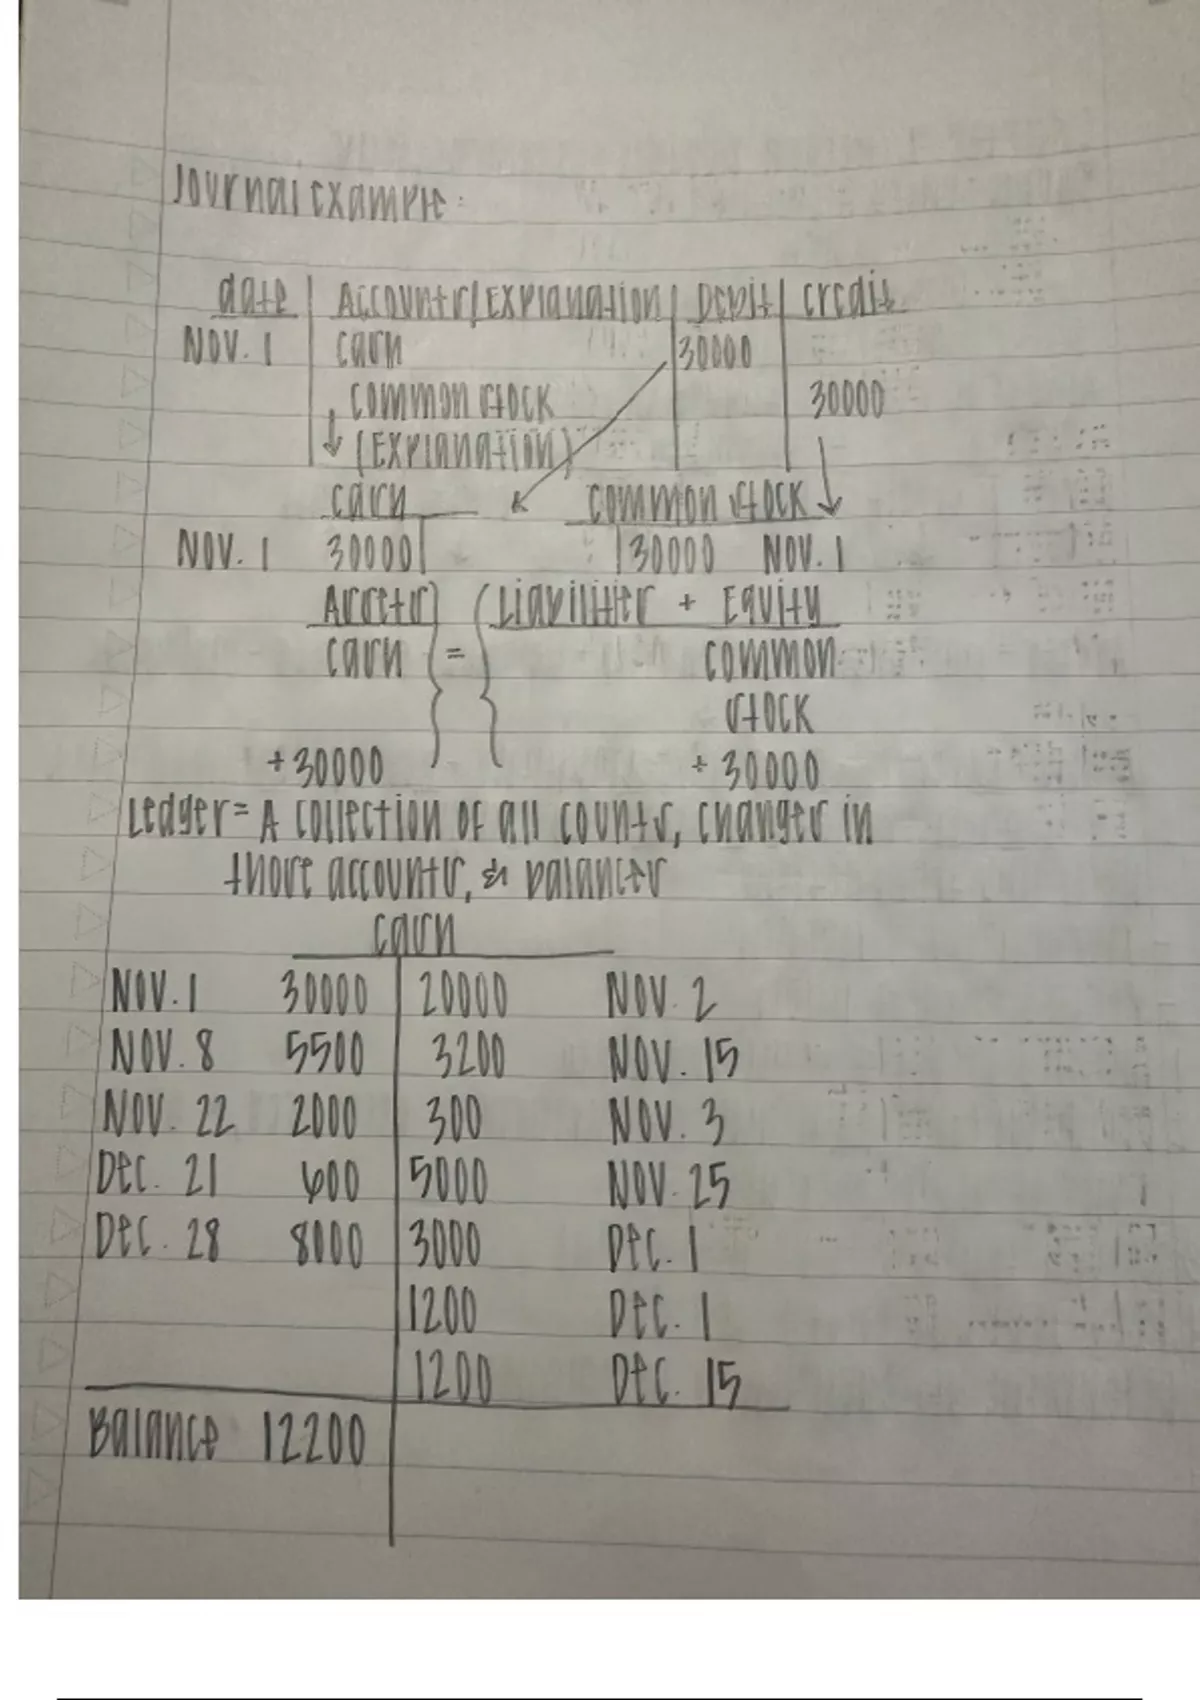 Journal Example:
date Accounts/Explanation Debit Credit
Nov. 1 Cash 30000
Common Stock 30000
(Explanation)
Cash Common Stock
Nov. 1 30000 30000 Nov. 1
Assets Liabilities + Equity
Cash = Common
Stock
+30000 +30000
Ledger = A collection of all counts, changes in
those accounts, & balances
Cash
Nov. 1 30000 20000 Nov. 2
Nov. 8 5500 3200 Nov. 15
Nov. 22 2000 300 Nov. 3
Dec. 21 600 5000 Nov. 25
Dec. 28 8000 3000 Dec. 1
1200 Dec. 1
1200 Dec. 15
Balance 12200